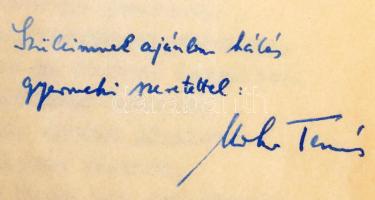 Szüleimnek ajánlom hálás
gyermeki szeretettel:
Mohr Tamás